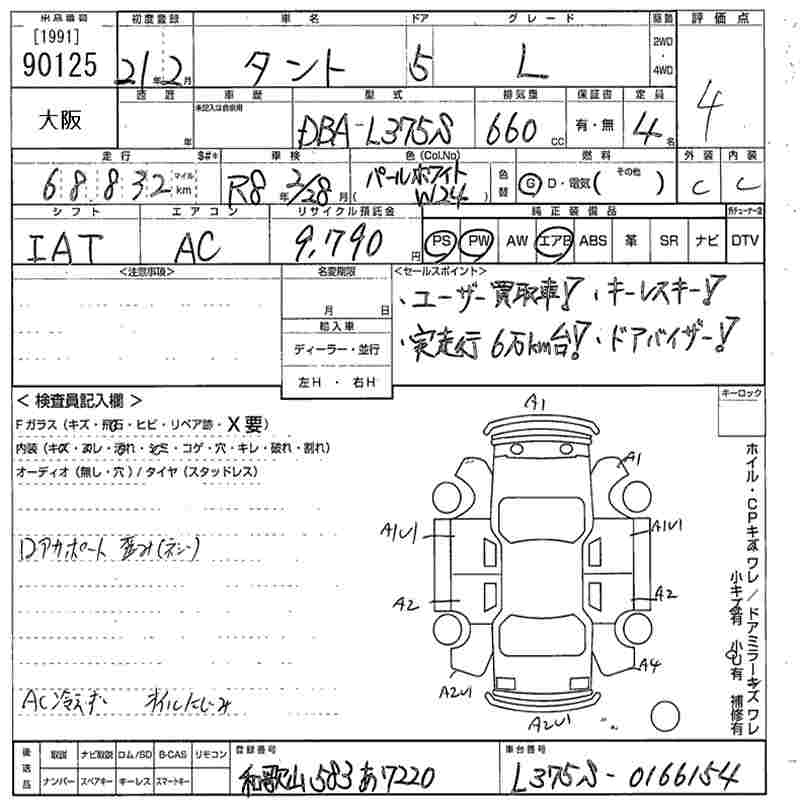 出品番号 初度登録 車名 ドア グレード 駆動 評価点
[1991]
90125 21年2月 タント 5 L 2WD・4WD 4
大阪 年 車歴 未記入は自家用 型式 DBA-L375S 排気量 660cc 保証書 有・無 定員 4名
走行 68,832 マイル km $#* 車検 R8年2/28月 色(Col.No) パールホワイト W24 色替 燃料 G D・電気( その他 ) 外装 C 内装 C
シフト IAT エアコン AC リサイクル預託金 9,790円 純正装備品 PS PW AW エアB ABS 革 SR ナビ DTV
<注意事項> 名変期限 <セールスポイント>
月 日
・ユーザー買取車! ・キーレスキー!
輸入車
ディーラー・並行
・実走行6万km台! ・ドアバイザー!
左H ・ 右H
キーロック
<検査員記入欄>
Fガラス(キズ・飛石・ヒビ・リペア跡・X要)
内装(キズ・スレ・汚れ・シミ・コゲ・穴・キレ・破れ・割れ)
オーディオ(無し・穴)/タイヤ(スタッドレス)
A1
A1
A1U1 A1U1
A2 A2
A2U1 A4
A2U1
ホイル・CPキズ ワレ/ドアミラーキズ ワレ
小キズ有 小U有 補修有
AC冷えず オイルにじみ
後送品 取説 ナビ取説 ロム/SD B-CAS リモコン
ナンバー スペアキー キーレス スマートキー
登録番号
和歌山583あ7220
車台番号
L375S-0166154